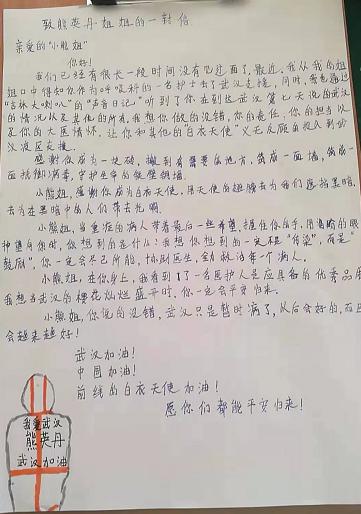 致熊英丹姐姐的一封信
亲爱的“小熊姐”
你好!
我们已经有很长一段时间没有见过面了,最近,我从我的姐
姐口中得知你作为呼吸科的一名护士去了武汉支援,同时,我也通过
“吉林大喇叭”的“声音日记”听到了你在到达武汉第七天说的武汉
的情况以及其他的所有,我想你做的没错,你的责任,你的担当以
及你的大医情怀,让你和其他的“白衣天使”义无反顾的投入到武
汉疫区支援。
感谢你成为一块砖,搬到有需要的地方,筑成一面墙,筑成一
面抵御病毒,守护生命的铜墙铁墙。
小熊姐,感谢你成为白衣天使,用天使的翅膀去为我们遮挡黑暗,
去为在黑暗中的人们带去光明。
小熊姐,当重症的病人带着最后一丝希望,握住你的手,用渴盼的眼
神望向你时,你想到的是什么?我想你想到的一定不是“传染”,而是“
鼓励”,你一定会尽己所能,协助医生,全力救治每一个病人。
小熊姐,在你身上,我看到了一名医护人员应具备的优秀品质
我想当武汉的樱花灿烂盛开时,你一定会平安归来。
小熊姐,你说的没错,武汉只是暂时病了,以后会好的,而且
会越来越好!
武汉加油!
中国加油!
前线的白衣天使加油!
愿你们都能平安归来!
我爱武汉
熊英丹
武汉加油